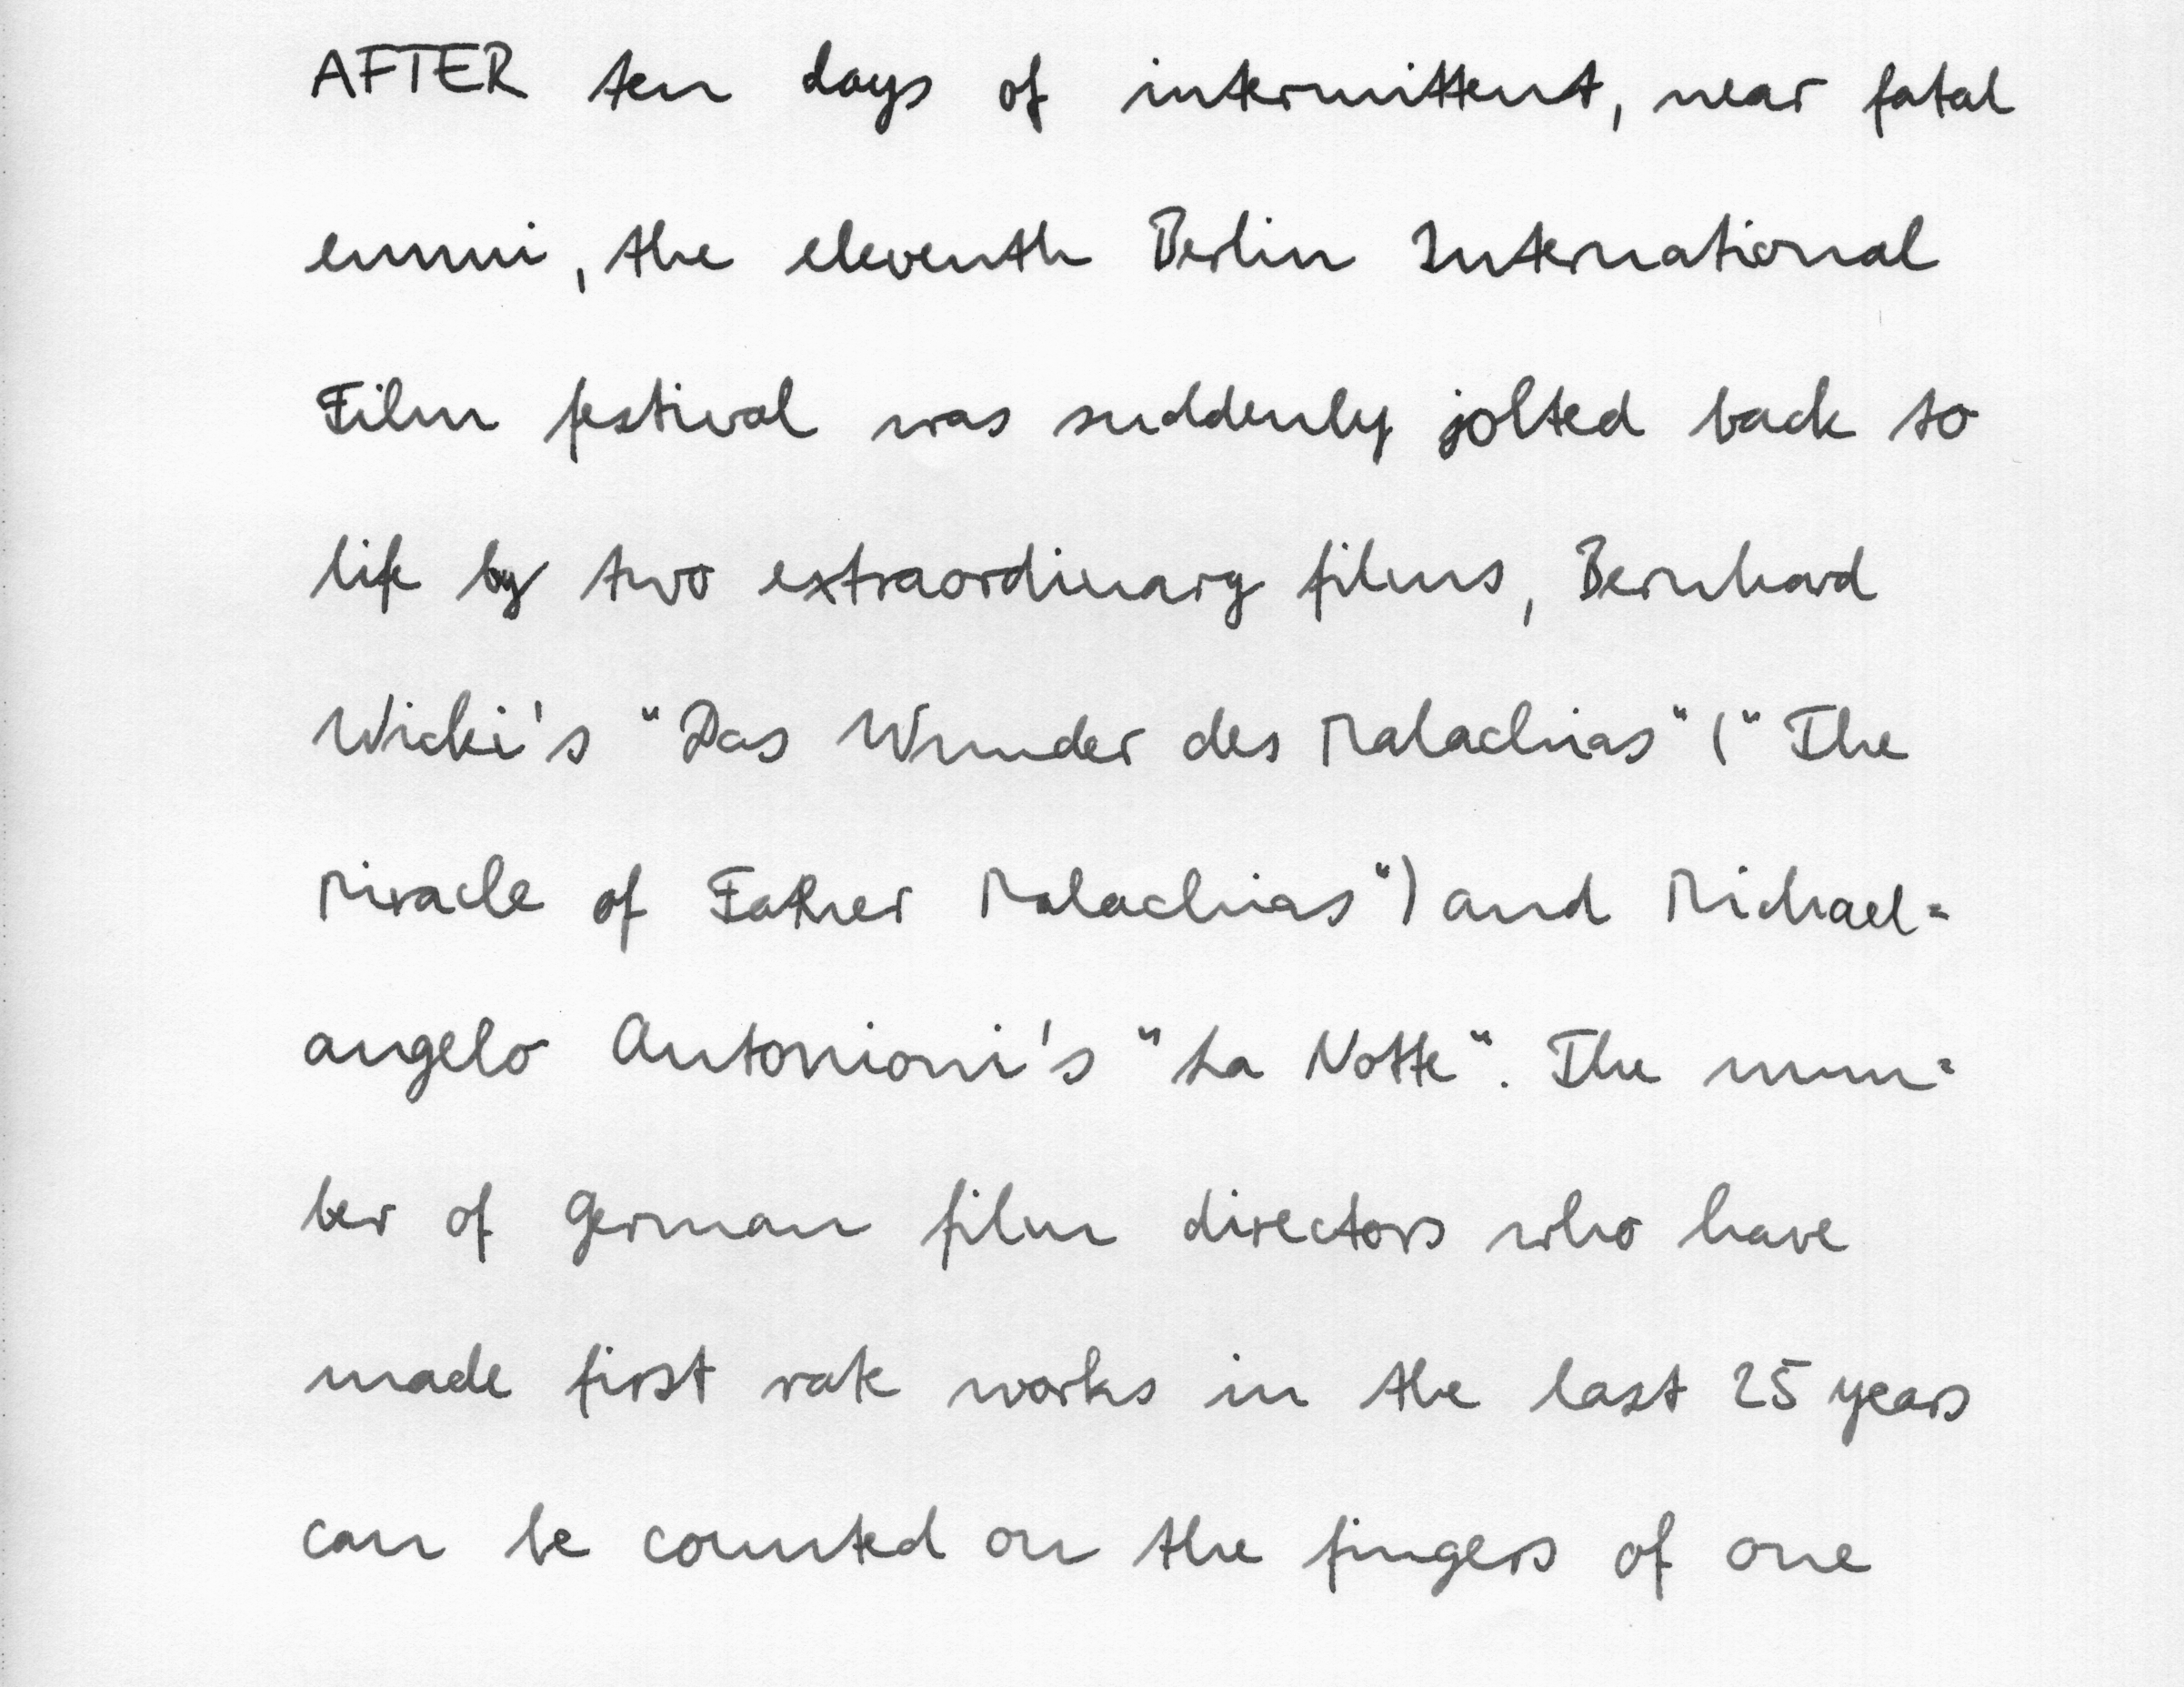 AFTER ten days of intermittent, near fatal
ennui, the eleventh Berlin International
Film festival was suddenly jolted back to
life by two extraordinary films, Bernhard
Wicki's "Das Wunder des Malachias" ("The
Miracle of Father Malachias") and Michael=
angelo Antonioni's "La Notte". The num=
ber of German film directors who have
made first rate works in the last 25 years
can be counted on the fingers of one